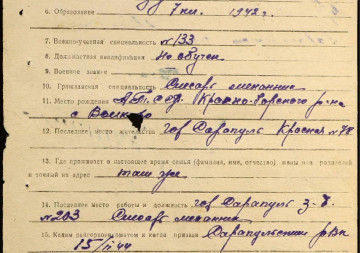 6. Образование 7 кл. 1942 г.
7. Военно-учетная специальность №133
8. Должностная квалификация Не обучен
9. Военное звание
10. Гражданская специальность Слесарь механик
11. Место рождения Красно-Борского р-на
с
12. Последнее место жительства гор Сарапуль Красная №78
13. Где проживает в настоящее время семья (фамилия, имя, отчество) жены или родителей
и точный их адрес там же
14. Последнее место работы и должность гор Сарапуль з-д
№203 Слесарь механик
15. Каким райгорвоенкоматом и когда призван Сарапульским рВк
15/II 44